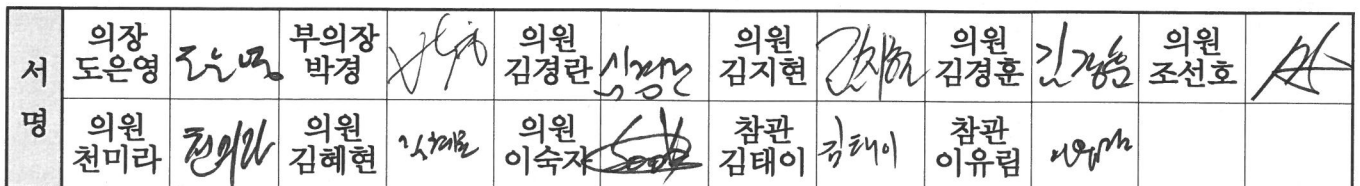 서명
의장 도은영 도은영 부의장 박경 의원 김경란 김경란 의원 김지현 김지현 의원 김경훈 김경훈 의원 조선호
의원 천미라 천미라 의원 김혜현 김혜현 의원 이숙자 참관 김태이 김태이 참관 이유림 이유림